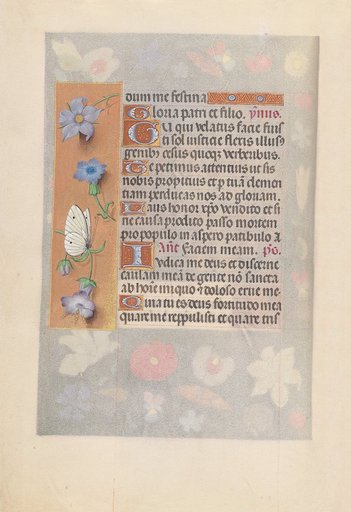 dum me festina
Gloria patri et filio. ymus.
Qui velatus facie fuisti
et sol iusticie flexis illusus
genibus cesus quoque verberibus.
Te petimus attentius ut sis
nobis propitius et per tuam clemen
tiam perducas nos ad gloriam.
Laus honor xpo vendito et si
ne causa prodito passo mortem
pro populo in aspero patibulo A
Ante faciem meam. ps.
Iudica me deus et discerne
causam meā de gente nō sancta
ab hoīe iniquo et doloso erue me.
Quia tu es deus fortitudo mea
quare me reppulisti et quare tris